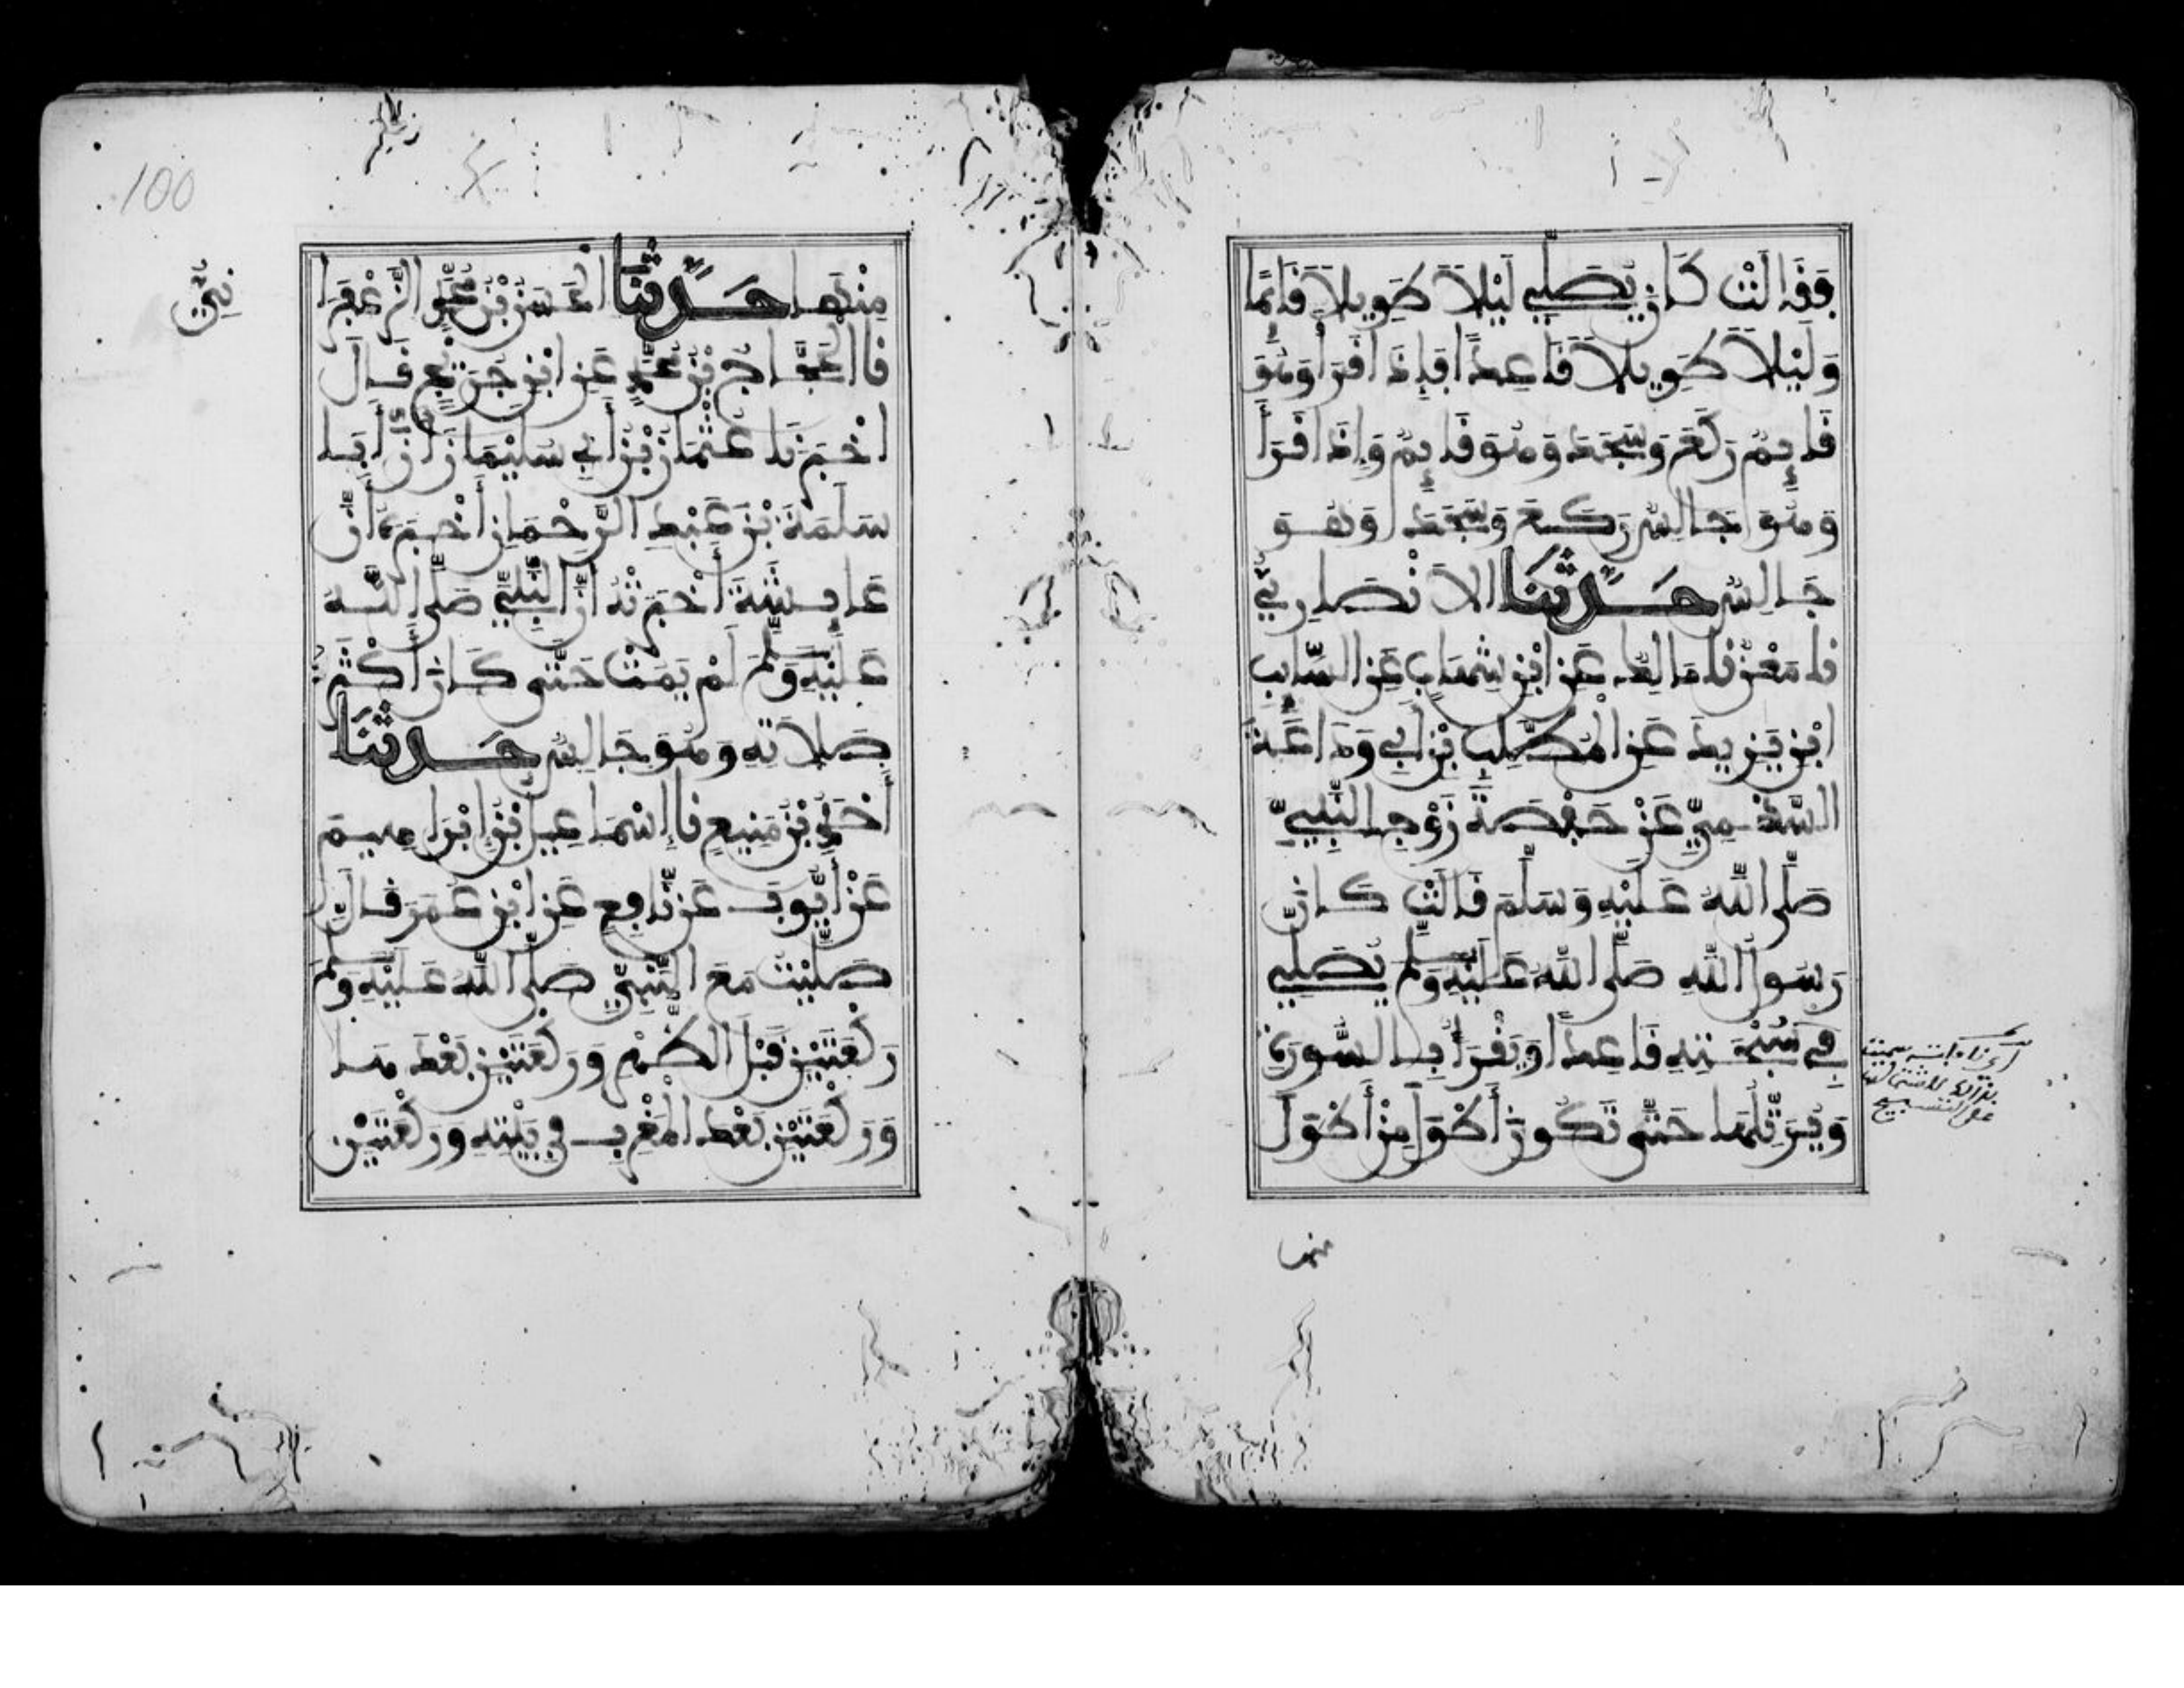 فَقَالَتْ كَانَ يُصَلِّي لَيْلاً طَوِيلاً قَائِمًا
وَلَيْلاً طَوِيلاً قَاعِدًا فَإِذَا قَرَأَ وَهُوَ
قَايِمٌ رَكَعَ وَسَجَدَ وَهُوَ قَايِمٌ وَإِذَا قَرَأَ
وَهُوَ جَالِسٌ رَكَعَ وَسَجَدَ وَهُوَ
جَالِسٌ حَدَّثَنَا الأَنْصَارِيُّ
نا مَعْنٌ نا مَالِكٌ عَنِ ابْنِ شِهَابٍ عَنِ السَّايِبِ
ابْنِ يَزِيدَ عَنِ الْمُطَّلِبِ بْنِ أَبِي وَدَاعَةَ
السَّهْمِيِّ عَنْ حَفْصَةَ زَوْجِ النَّبِيِّ
صَلَّى اللهُ عَلَيْهِ وَسَلَّمَ قَالَتْ كَانَ
رَسُولُ اللهِ صَلَّى اللهُ عَلَيْهِ وَسَلَّمَ يُصَلِّي
فِي سُبْحَتِهِ قَاعِدًا وَيَقْرَأُ بِالسُّورَةِ
وَيُرَتِّلُهَا حَتَّى تَكُونَ أَطْوَلَ مِنْ أَطْوَلَ
منها
100
مِنْهَا حَدَّثَنَا الْحَسَنُ بْنُ مُحَمَّدٍ الزَّعْفَرَا
نِيُّ
نا الْحَجَّاجُ بْنُ مُحَمَّدٍ عَنِ ابْنِ جُرَيْجٍ قَالَ
اخْبَرَنَا عُثْمَانُ بْنُ أَبِي سُلَيْمَانَ أَنَّ أَبَا
سَلَمَةَ بْنَ عَبْدِ الرَّحْمَانِ أَخْبَرَهُ أَنَّ
عَايِشَةَ أَخْبَرَتْهُ أَنَّ النَّبِيَّ صَلَّى اللهُ
عَلَيْهِ وَسَلَّمَ لَمْ يَمُتْ حَتَّى كَانَ أَكْثَرُ
صَلاَتِهِ وَهُوَ جَالِسٌ حَدَّثَنَا
أَحْمَدُ بْنُ مَنِيعٍ نا إِسْمَاعِيلُ بْنُ إِبْرَاهِيمَ
عَنْ أَيُّوبَ عَنْ نَّافِعٍ عَنِ ابْنِ عُمَرَ قَالَ
صَلَّيْتُ مَعَ النَّبِيِّ صَلَّى اللهُ عَلَيْهِ وَسَلَّمَ
رَكْعَتَيْنِ قَبْلَ الظُّهْرِ وَرَكْعَتَيْنِ بَعْدَهَا
وَرَكْعَتَيْنِ بَعْدَ الْمَغْرِبِ فِي بَيْتِهِ وَرَكْعَتَيْنِ